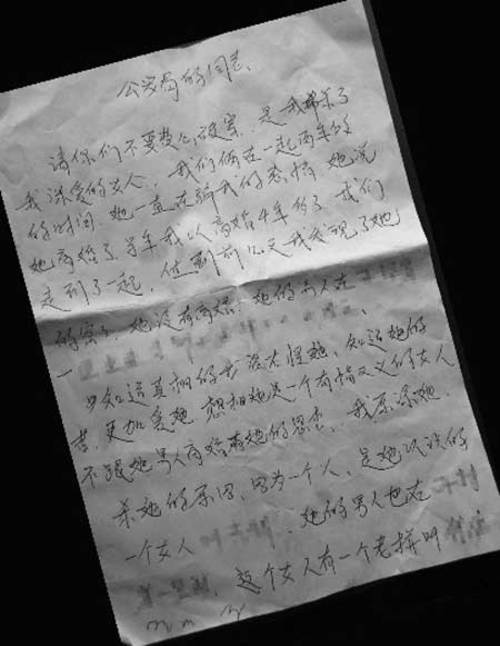 公安局的同志、
请你们不要费心破案、是我帮杀了
我深爱的女人、我们俩在一起两年多
的时间、她一直在骗我的感情、她说
她离婚了、当年我以离婚4年多了、我们
走到了一起、但到前几天我发现了她
的密、她没有离婚、她的男人在
一
当知道真相的我没有怪她、知道她的
苦、更加爱她、想想她是一个有情又义的女人
不跟她男人离婚有她的思想、我原谅她、
杀她的原因、因为一个人、是她认识的
一个女人、她的男人也在
这个女人有一个老拼叫